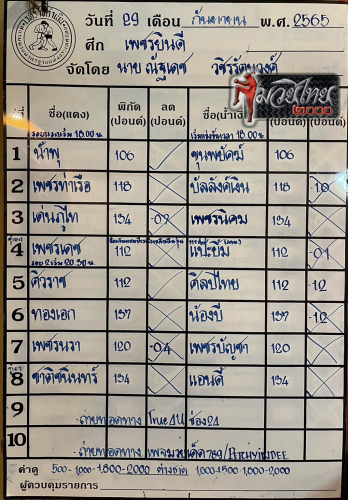 วันที่ 29 เดือน กันยายน พ.ศ. 2565
ศึก เพชรยินดี
จัดโดย นาย ณัฐเดช วชิรรัตนวงศ์
มวยไทย ๒๐๐๐
ที่ ชื่อ(แดง) พิกัด (ปอนด์) ลด (ปอนด์) ชื่อ(น้ำเงิน) (ปอนด์) (ปอนด์)
รอบแรกเริ่ม 18.00 น. 18.00 น.
1 น้ำพุ 106 ขุนพยัคฆ์ 106
2 เพชรท่าเรือ 118 บัลลังค์เงิน 118 -1.0
3 เด่นภูไท 134 -0.7 เพชรนิคม 134
4 เพชรเดช 112 แป๊ะยิ้ม 112 -0.1
รอบ 2 เริ่ม 20.30 น.
5 ศิวราช 112 ศิลป์ไทย 112 -1.2
6 ทองเอก 137 น้องบี 137 -1.2
7 เพชรนรา 120 -0.4 เพชรบัญชา 120
8 ชาติชนินทร์ 134 แอนดี้ 134
9
- ถ่ายทอดทาง True4U ช่อง 24
10
- ถ่ายทอดทาง
ค่าดู 500-1,000-1,500-2,000 ต่างชาติ 1,000-1,500-1,000-2,000
ผู้ควบคุมรายการ